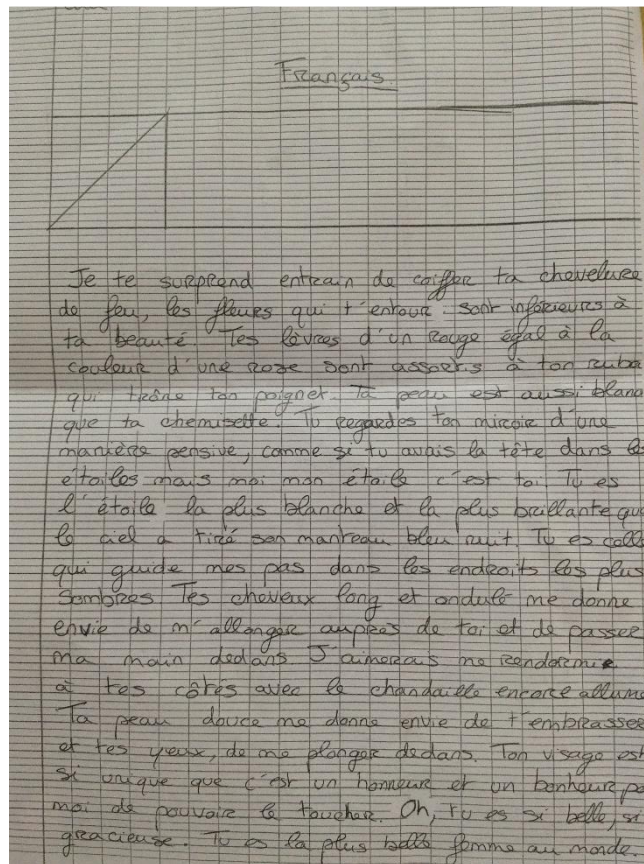 Français.
Je te surprend entrain de coiffer ta chevelure
de feu, les fleurs qui t'entour sont inférieurs à
ta beauté. Tes lèvres d'un rouge égal à la
couleur d'une roze sont assortis à ton ruba
qui trône ton poignet. Ta peau est aussi blanc
que ta chemisette. Tu regardes ton miroir d'une
manière pensive, comme si tu avais la tête dans le
étoiles mais moi mon étoile c'est toi. Tu es
l'étoile la plus blanche et la plus brillante que
le ciel a tiré son manteau bleu nuit. Tu es celle
qui guide mes pas dans les endroits les plus
sombres Tes cheveux long et ondulé me donne
envie de m'allonger auprès de toi et de passer
ma main dedans J'aimerais me rendormir
à tes côtés avec le chandaille encore allumé
Ta peau douce me donne envie de t'embrasser
et tes yeux, de me plonger dedans. Ton visage est
si unique que c'est un honneur et un bonheur po
moi de pouvoir le toucher. Oh, tu es si belle, si
gracieuse. Tu es la plus belle femme au monde.